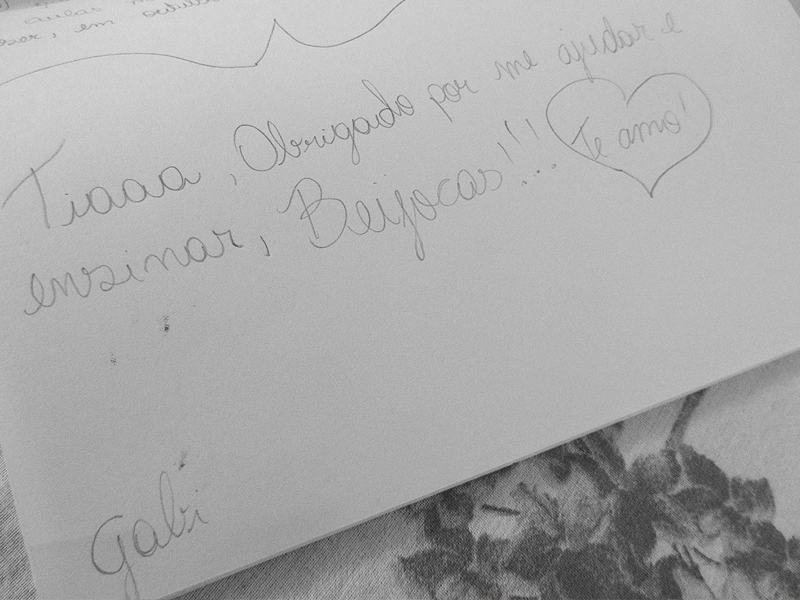 aulas
em
Tiaaa, Obrigado por me ajudar e
ensinar, Beijocas!!!... Te amo!
Gabi